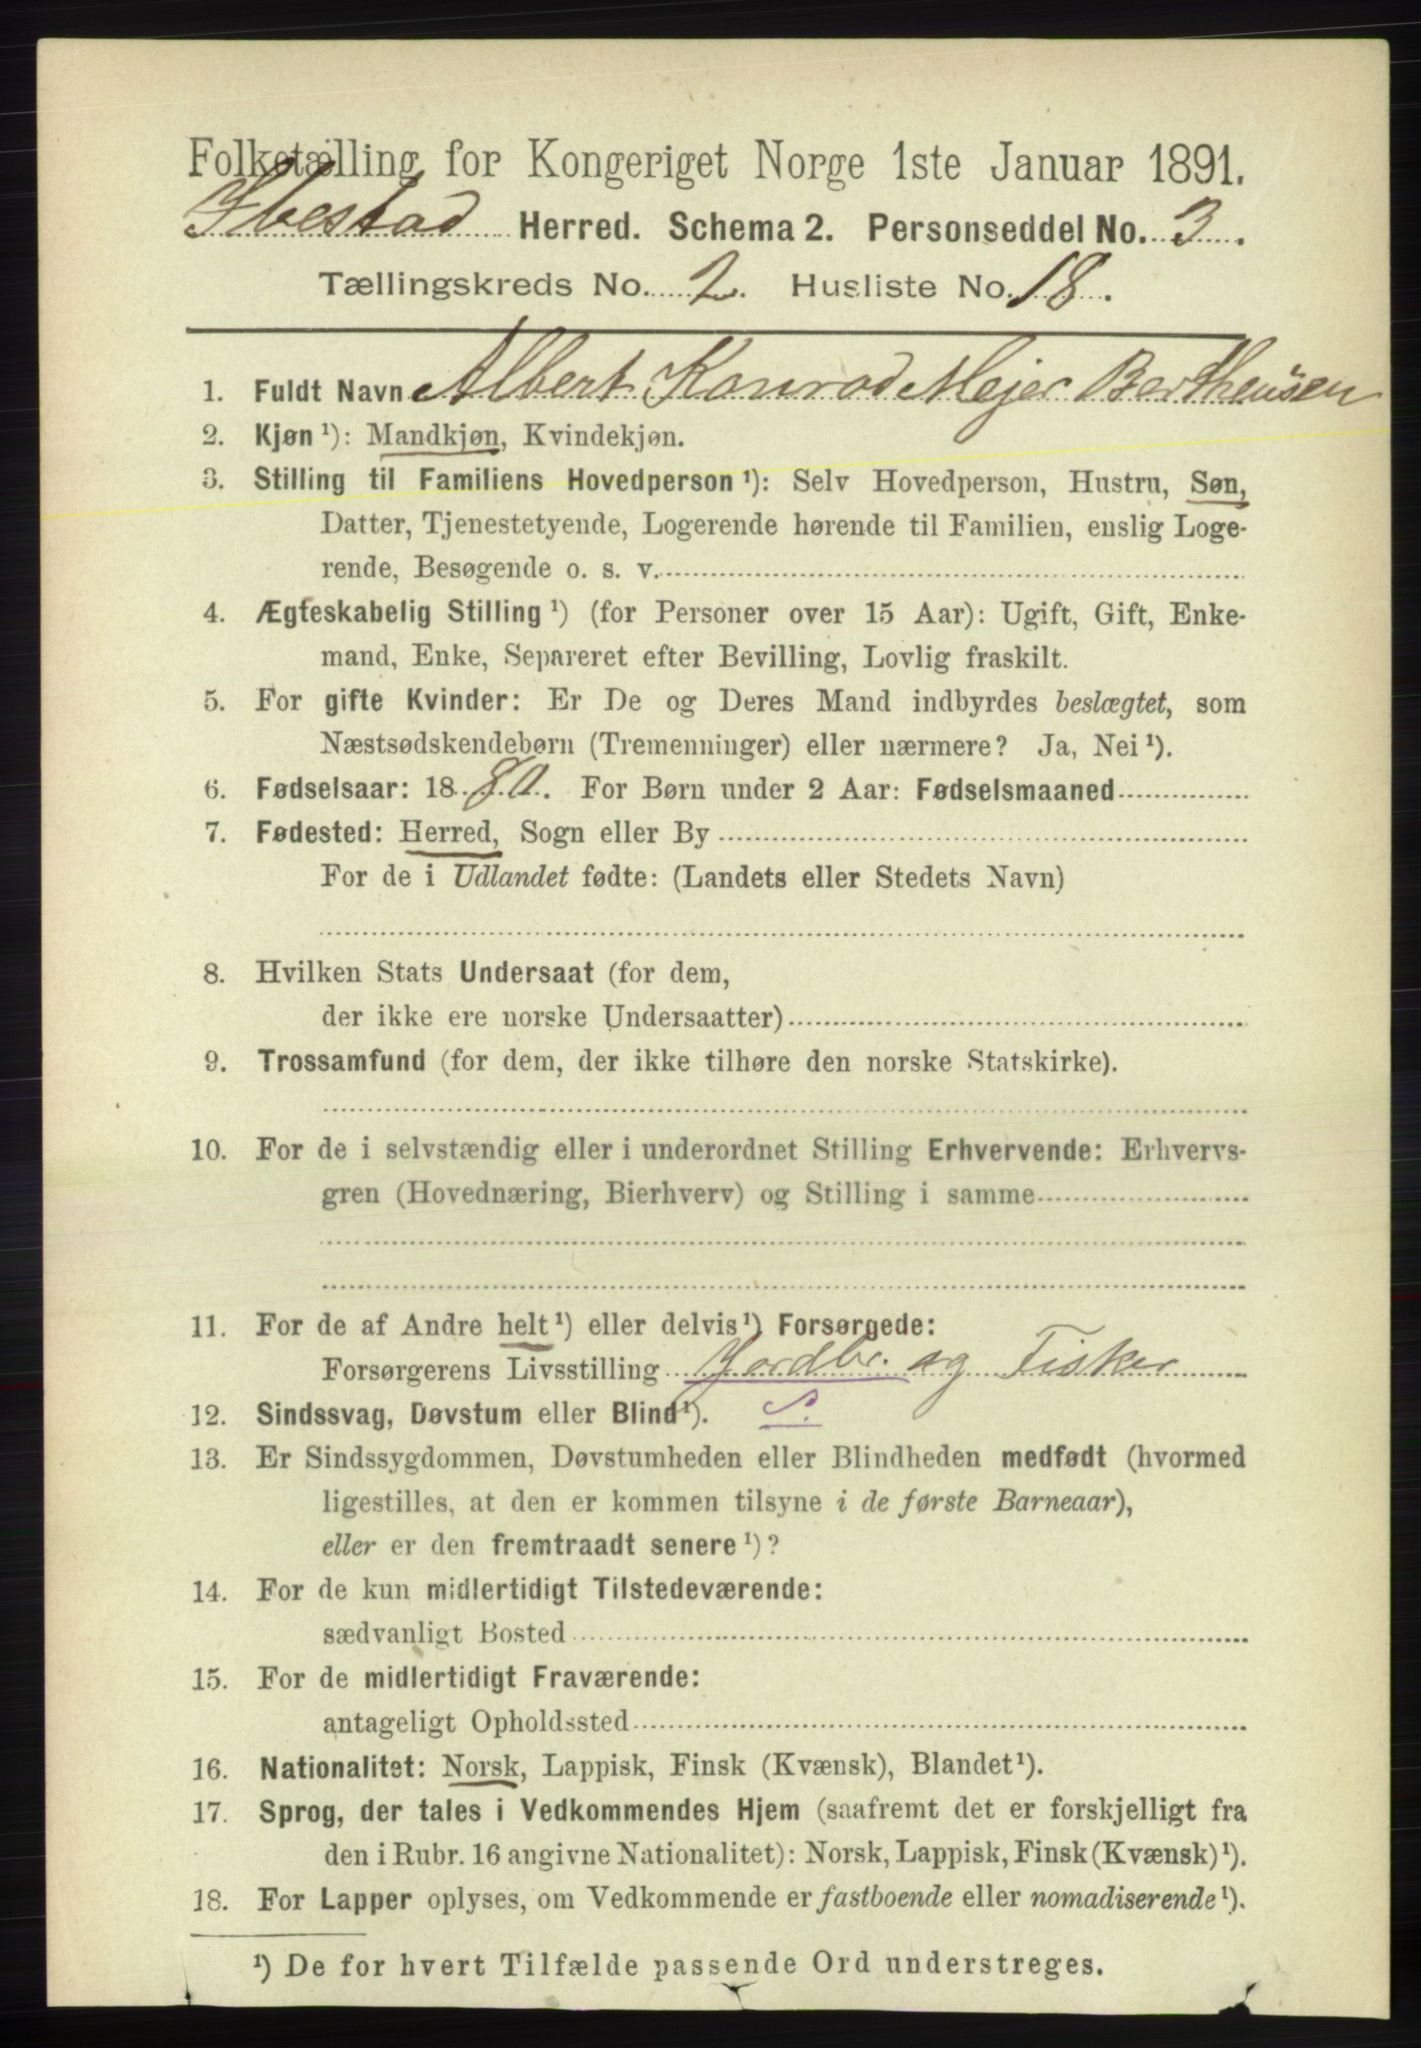 Folketælling for Kongeriget Norge 1ste Januar 1891.
Ibestad Herred. Schema 2. Personseddel No. 3.
Tællingskreds No. 2. Husliste No. 18.
1. Fuldt Navn Albert Konrad Mejer Bertheüsen
2. Kjøn ¹): Mandkjøn, Kvindekjøn.
3. Stilling til Familiens Hovedperson ¹): Selv Hovedperson, Hustru, Søn,
Datter, Tjenestetyende, Logerende hørende til Familien, enslig Loge-
rende, Besøgende o. s. v.
4. Ægteskabelig Stilling ¹) (for Personer over 15 Aar): Ugift, Gift, Enke-
mand, Enke, Separeret efter Bevilling, Lovlig fraskilt.
5. For gifte Kvinder: Er De og Deres Mand indbyrdes beslægtet, som
Næstsødskendebørn (Tremenninger) eller nærmere? Ja, Nei ¹).
6. Fødselsaar: 1880. For Børn under 2 Aar: Fødselsmaaned
7. Fødested: Herred, Sogn eller By
For de i Udlandet fødte: (Landets eller Stedets Navn)
8. Hvilken Stats Undersaat (for dem,
der ikke ere norske Undersaatter)
9. Trossamfund (for dem, der ikke tilhøre den norske Statskirke).
10. For de i selvstændig eller i underordnet Stilling Erhvervende: Erhvervs-
gren (Hovednæring, Bierhverv) og Stilling i samme
11. For de af Andre helt ¹) eller delvis ¹) Forsørgede:
Forsørgerens Livsstilling Jordbr. og Fisker
12. Sindssvag, Døvstum eller Blind ¹). S.
13. Er Sindssygdommen, Døvstumheden eller Blindheden medfødt (hvormed
ligestilles, at den er kommen tilsyne i de første Barneaar),
eller er den fremtraadt senere ¹)?
14. For de kun midlertidigt Tilstedeværende:
sædvanligt Bosted
15. For de midlertidigt Fraværende:
antageligt Opholdssted
16. Nationalitet: Norsk, Lappisk, Finsk (Kvænsk), Blandet ¹).
17. Sprog, der tales i Vedkommendes Hjem (saafremt det er forskjelligt fra
den i Rubr. 16 angivne Nationalitet): Norsk, Lappisk, Finsk (Kvænsk) ¹).
18. For Lapper oplyses, om Vedkommende er fastboende eller nomadiserende ¹).
¹) De for hvert Tilfælde passende Ord understreges.